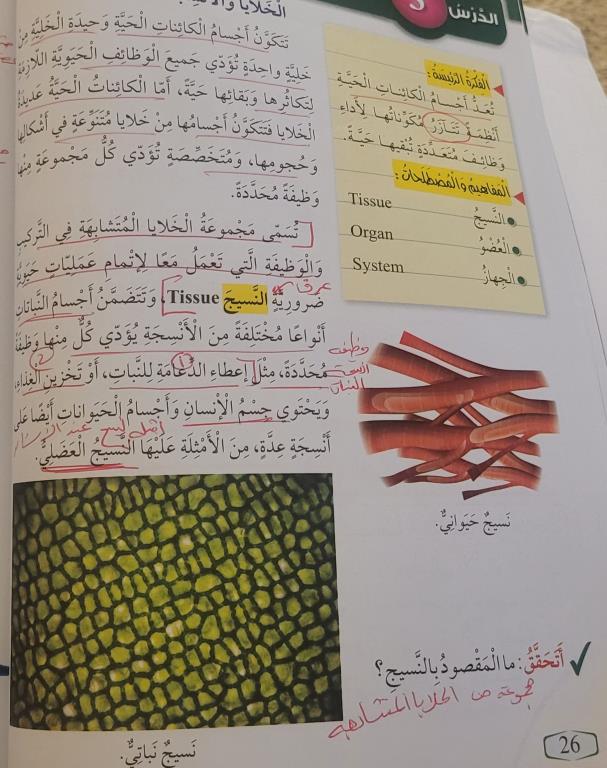 الدَّرْسُ 3
الْخَلايا وَالأَنْسِجَةُ
الْفِكْرَةُ الرَّئيسَةُ:
تُعَدُّ أَجْسامُ الْكائِناتِ الْحَيَّةِ
أَنْظِمَةً تَتَآزَرُ مُكَوِّناتُها لِأَداءِ
وَظائِفَ مُتَعَدِّدَةٍ تُبْقيها حَيَّةً.
الْمَفاهيمُ وَالْمُصْطَلَحاتُ:
النَّسيجُ Tissue
الْعُضْوُ Organ
الْجِهازُ System
تَتَكَوَّنُ أَجْسامُ الْكائِناتِ الْحَيَّةِ وَحيدَةِ الْخَلِيَّةِ مِنْ
خَلِيَّةٍ واحِدَةٍ تُؤَدّي جَميعَ الْوَظائِفِ الْحَيَوِيَّةِ اللّازِمَةِ
لِتَكاثُرِها وَبَقائِها حَيَّةً، أَمّا الْكائِناتُ الْحَيَّةُ عَديدَةُ
الْخَلايا فَتَتَكَوَّنُ أَجْسامُها مِنْ خَلايا مُتَنَوِّعَةٍ في أَشْكالِها
وَحُجومِها، وَمُتَخَصِّصَةٍ تُؤَدّي كُلُّ مَجْموعَةٍ مِنْها
وَظيفَةً مُحَدَّدَةً.
تُسَمّى مَجْموعَةُ الْخَلايا الْمُتَشابِهَةِ في التَّرْكيبِ
وَالْوَظيفَةِ الَّتي تَعْمَلُ مَعًا لِإتْمامِ عَمَلِيّاتٍ حَيَوِيَّةٍ
ضَرورِيَّةٍ النَّسيجَ Tissue، وَتَتَضَمَّنُ أَجْسامُ النَّباتاتِ
أَنْواعًا مُخْتَلِفَةً مِنَ الْأَنْسِجَةِ يُؤَدّي كُلٌّ مِنْها وَظيفَةً
مُحَدَّدَةً، مِثْلَ إعْطاءِ الدِّعامَةِ لِلنَّباتِ، أَوْ تَخْزينِ الْغِذاءِ.
وَيَحْتَوي جِسْمُ الْإنْسانِ وَأَجْسامُ الْحَيَواناتِ أَيْضًا عَلى
أَنْسِجَةٍ عِدَّةٍ، مِنَ الْأَمْثِلَةِ عَلَيْها النَّسيجُ الْعَضَلِيُّ.
نَسيجٌ حَيَوانِيٌّ.
أَتَحَقَّقُ: ما الْمَقْصودُ بِالنَّسيجِ؟
مجموعة من الخلايا المتشابهه
نَسيجٌ نَباتِيٌّ.
26